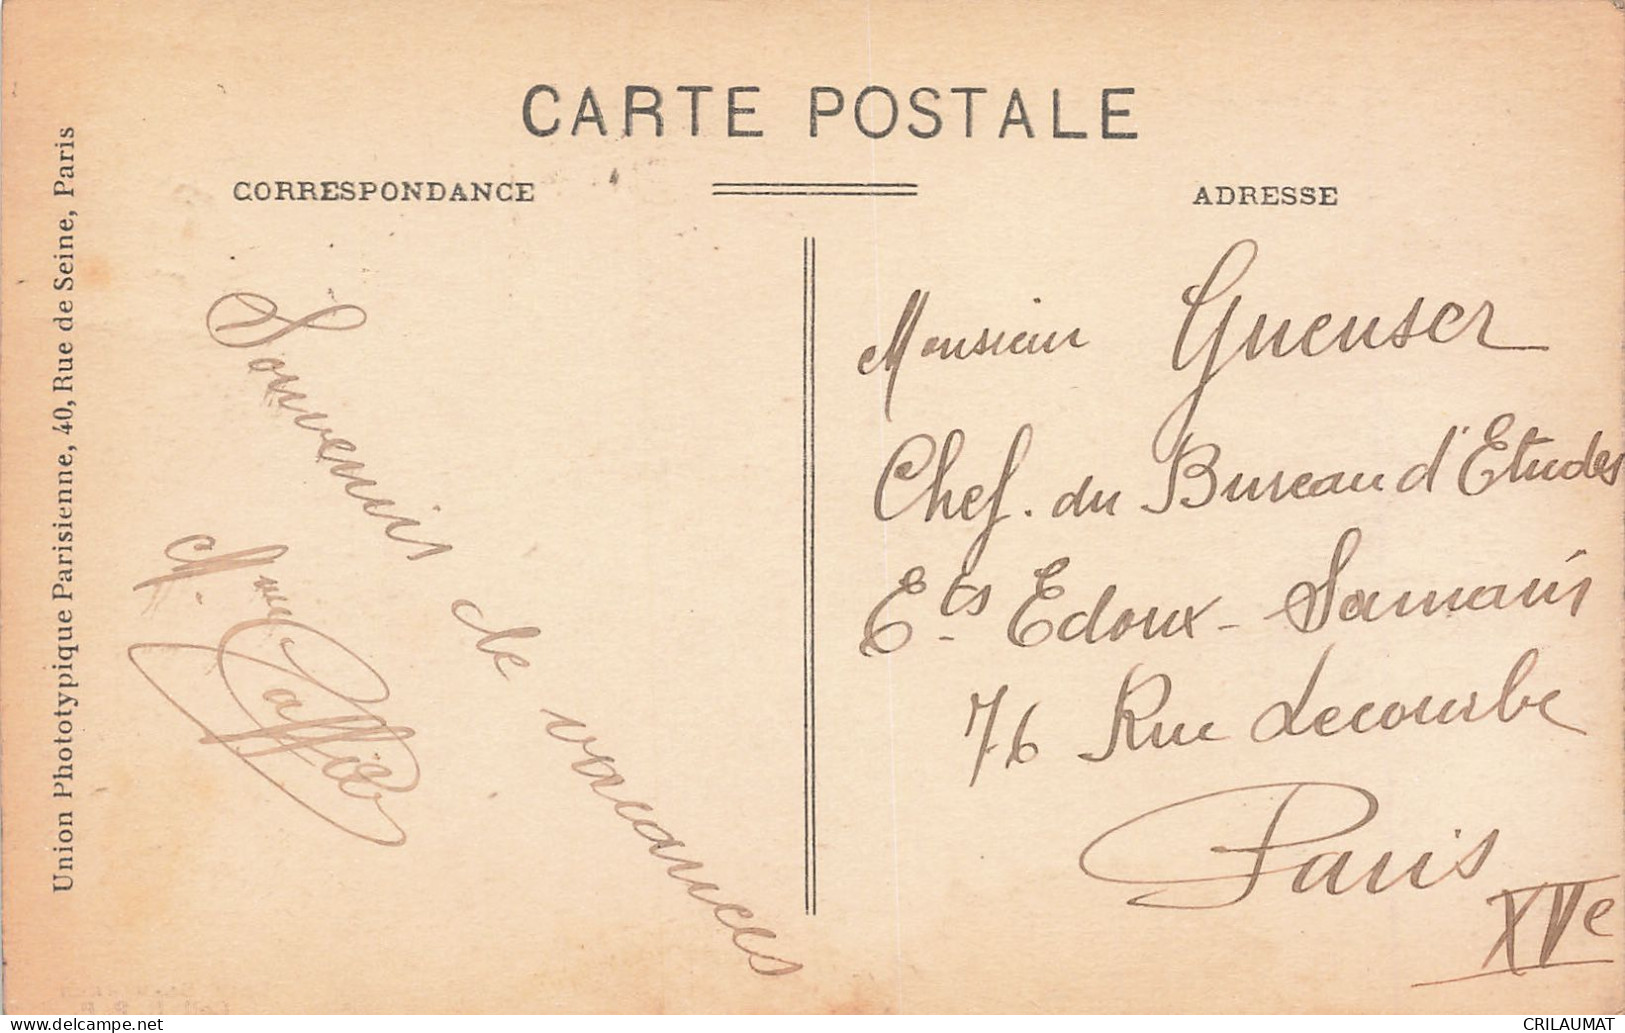 CARTE POSTALE
CORRESPONDANCE
ADRESSE
Union Phototypique Parisienne, 40, Rue de Seine, Paris
Souvenir de vacances
Monsieur Gueuser
Chef. du Bureau d'Etudes
Ets Edoux-Samain
76 Rue Lecourbe
Paris
XVe
CRILAUMAT